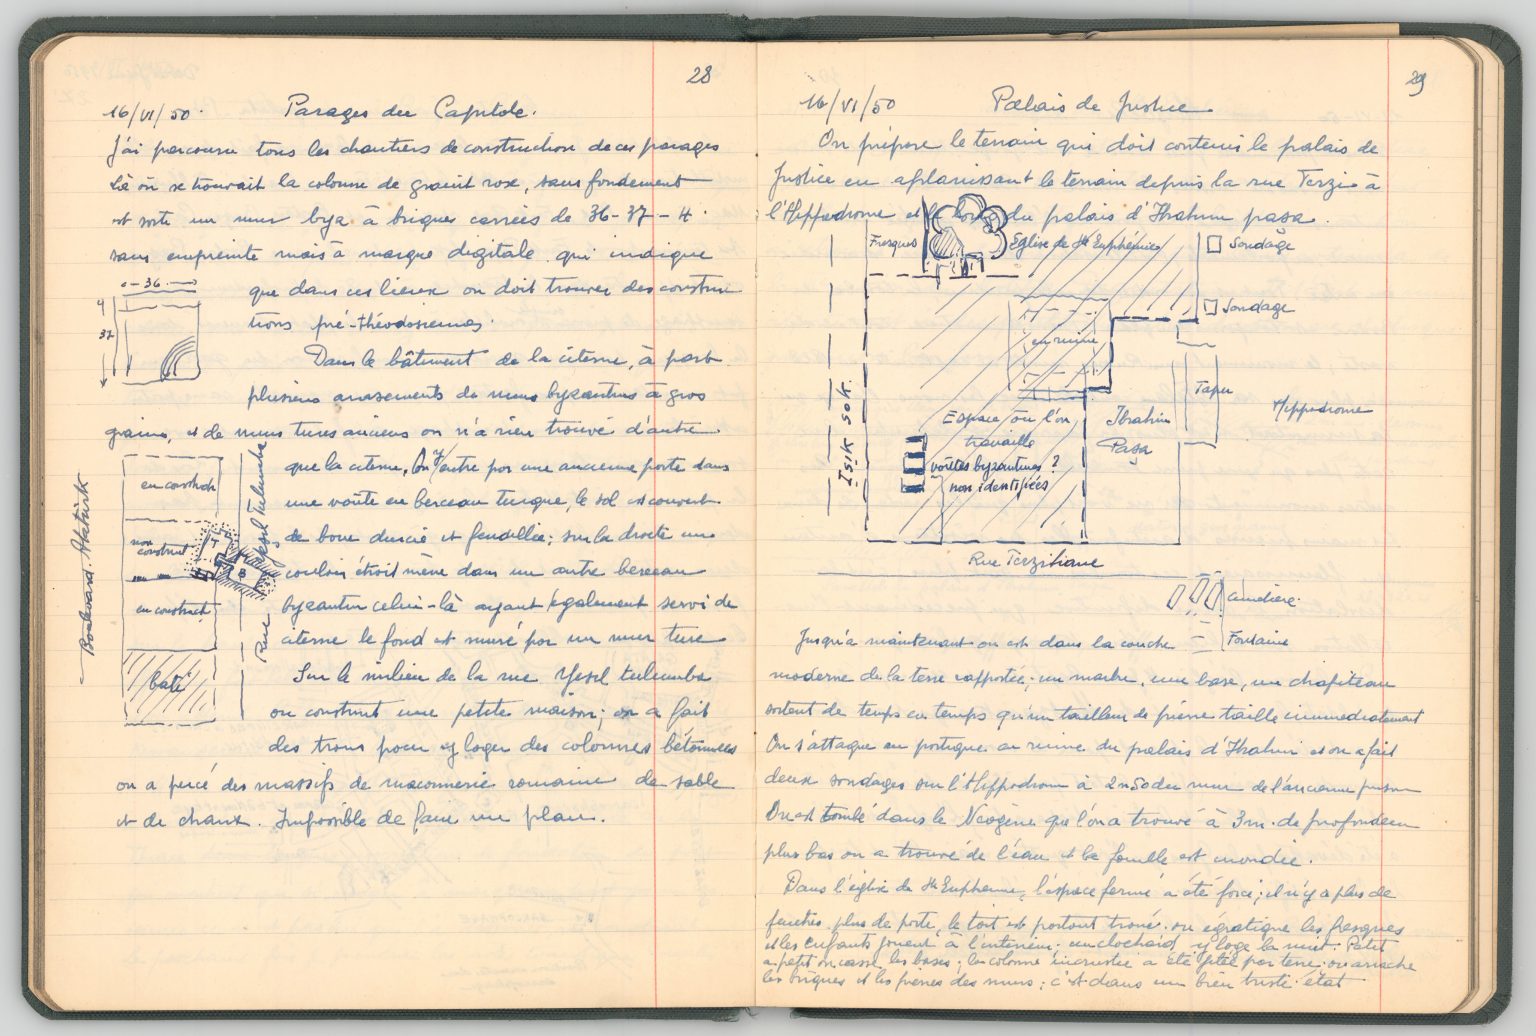 28
16/VI/50. Parages du Capitole.
J'ai parcouru tous les chantiers de construction de ces parages
Là où se trouvait la colonne de granit rose, sans fondement
est sorti un mur byz à briques carrées de 36-37-4.
sans empreinte mais à marque digitale qui indique
que dans ces lieux on doit trouver des construc
tions pré-théodosiennes.
36
4
37
Dans le bâtiment de la citerne, à part
plusieurs arasements de murs byzantins à gros
grains, et de murs turcs anciens on n'a rien trouvé d'autre
que la citerne. On y entre par une ancienne porte dans
une voûte en berceau turque, le sol est couvert
de boue durcie et fendillée; sur la droite un
couloir étroit mène dans un autre berceau
byzantin celui-là ayant également servi de
citerne le fond est muré par un mur turc
Boulevard Atatürk
en construct
non
construit
en construct
bati
T
B
Rue Yesil Tulumba
Sur le milieu de la rue Yesil tulumba
on construit une petite maison; on a fait
des trous pour y loger des colonnes bétonnées
on a percé des massifs de maconnerie romaine de sable
et de chaux. Impossible de faire un plan.
29
16/VI/50 Palais de Justice
On prépare le terrain qui doit contenir le palais de
Justice en aplanissant le terrain depuis la rue Terzi à
l'Hippodrome et le long du palais d'Ibrahim paşa.
Fresques
Eglise de Ste Euphémie
Sondage
Sondage
en ruine
Tapu
Hippodrome
Işik sok.
Espace où l'on
travaille
Ibrahim
Paşa
voûtes byzantines?
non identifiées
Rue Terzihane
cimetière
Fontaine
Jusqu'à maintenant on est dans la couche
moderne de la terre rapportée; un marbre, une base, un chapiteau
sortent de temps en temps qu'un tailleur de pierre taille immédiatement
On s'attaque au portique en ruine du palais d'Ibrahim et on a fait
deux sondages sur l'Hippodrome à 2m50 du mur de l'ancienne prison
On est tombé dans le Néogène que l'on a trouvé à 3m. de profondeur
plus bas on a trouvé de l'eau et la fouille est inondée.
Dans l'église de Ste Euphémie, l'espace fermé a été forcé; il n'y a plus de
fenêtres, plus de porte, le toit est partout troué. on égratigne les fresques
et les enfants jouent à l'intérieur; un clochard y loge la nuit. Petit
a petit on casse les bases; la colonne incrustée a été jetée par terre; on arrache
les briques et les pierres des murs; c'est dans un bien triste état